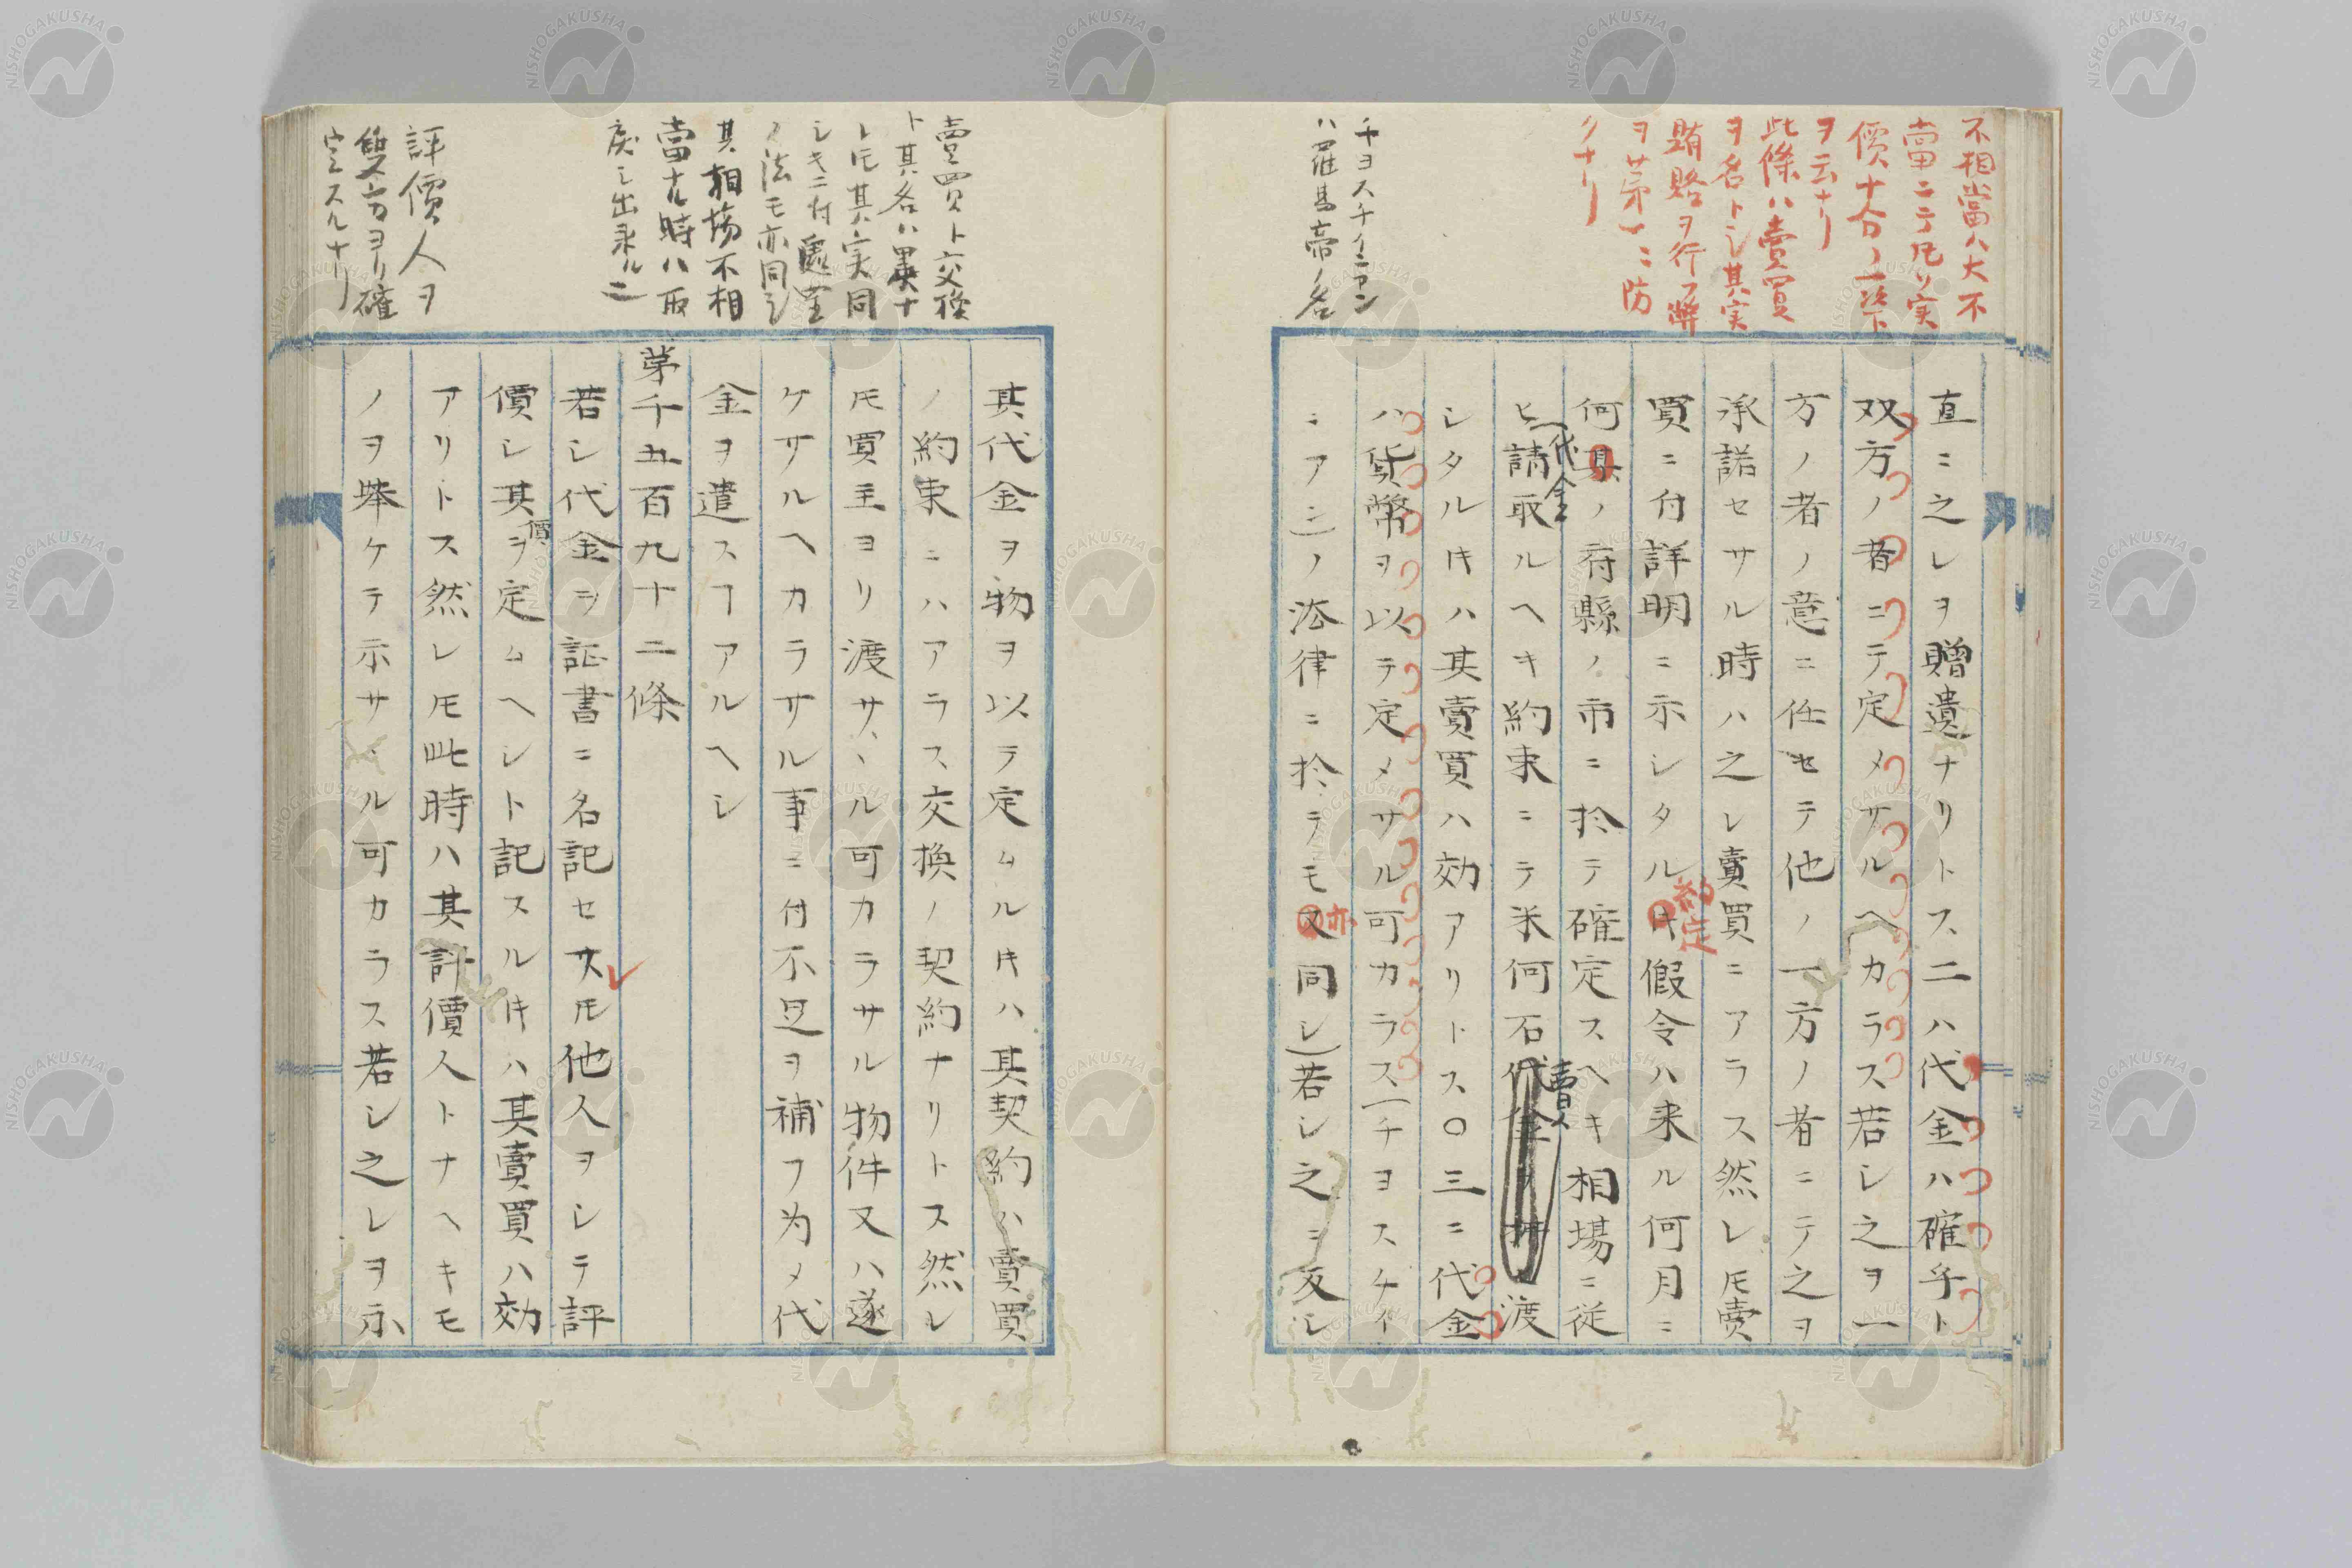 不相當ハ大不
當ニテ凡ソ実
價十分ノ一以下
ヲ云ナリ
此條ハ賣買
ヲ名トシ其実
賄賂ヲ行フ弊
ヲ第一ニ防
クナリ
チヨスチイニアン
ハ羅馬帝ノ名
直ニ之レヲ贈遺ナリトス二ハ代金ハ確乎ト
双方ノ者ニテ定メサルヘカラス若シ之ヲ一
方ノ者ノ意ニ任セテ他ノ一方ノ者ニテ之ヲ
承諾セサル時ハ之レ賣買ニアラス然レ𪜈賣
買ニ付詳明ニ示シタル約定キ假令ハ来ル何月ニ
何某ノ府縣ノ市ニ於テ確定スヘキ相場ニ従
ヒ代金請取ルヘキ約束ニテ米何石賣渡
シタルキハ其賣買ハ効アリトス〇三ニ代金
ハ貨幣ヲ以テ定メサル可カラス(チヨスチイ
ニアン)ノ法律ニ於テモ又亦同シ)若シ之ニ反シ
賣買ト交換
ト其名ハ異ナ
レ𪜈其実同
シキニ付
ノ法モ亦同シ
其相場不相
當ナル時ハ取
戻シ出来ル
評價人ヲ
雙方ヨリ確
定スルナリ
其代金ヲ物ヲ以テ定ムルキハ其契約ハ賣買
ノ約束ニハアラス交換ノ契約ナリトス然レ
𪜈買主ヨリ渡サヽル可カラサル物件又ハ遂
ケサルヘカラサル事ニ付不足ヲ補フ为メ代
金ヲ遣スヿアルヘシ
第千五百九十二條
若シ代金ヲ証書ニ名記セス𪜈他人ヲシテ評
價シ其價ヲ定ムヘシト記スルキハ其賣買ハ効
アリトス然レ𪜈此時ハ其評價人トナヘキモ
ノヲ挙ケテ示サヽル可カラス若シ之レヲ示